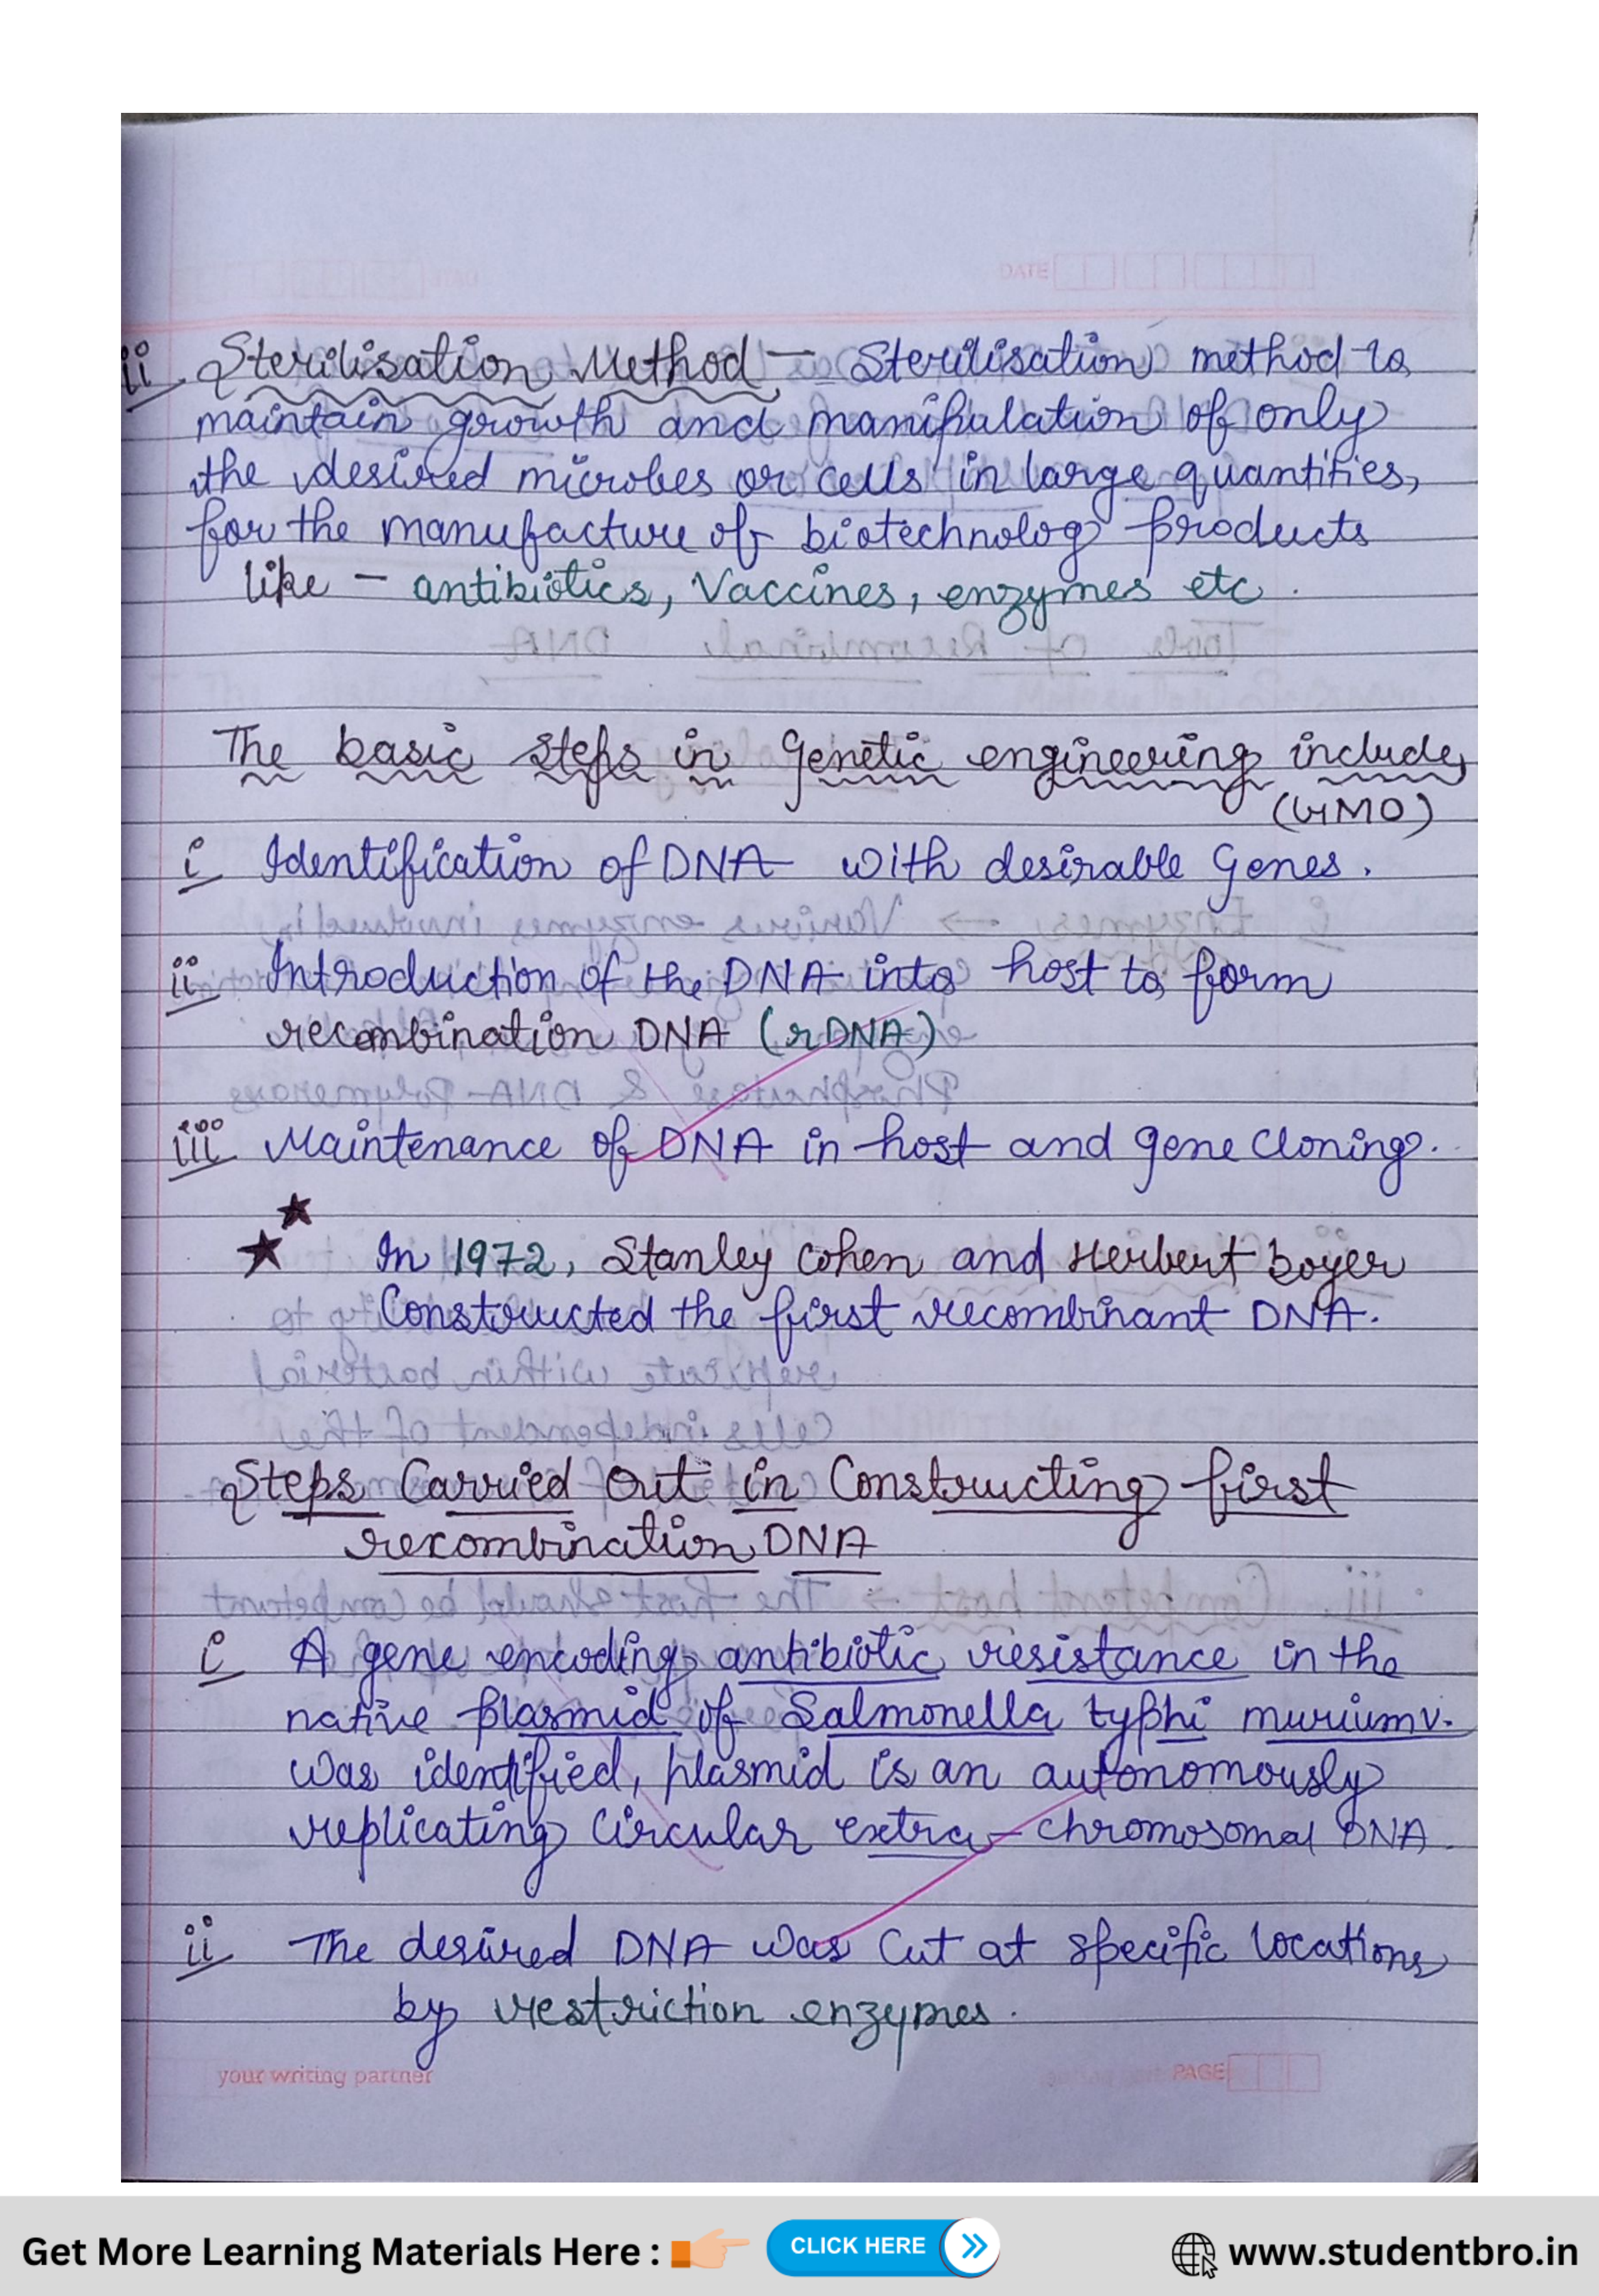 DATE
ii Sterilisation Method - Sterilisation method to
maintain growth and manipulation of only
the desired microbes or cells in large quantities,
for the manufacture of biotechnology products
like - antibiotics, Vaccines, enzymes etc.
The basic steps in Genetic engineering include,
(GMO)
i Identification of DNA with desirable Genes.
ii Introduction of the DNA into host to form
recombination DNA (rDNA)
iii Maintenance of DNA in host and gene Cloning.
In 1972, Stanley Cohen and Herbert boyer
Constructed the first recombinant DNA.
Steps Carried Out in Constructing first
recombination DNA
i A gene encoding antibiotic resistance in the
native plasmid of Salmonella typhi murium
was identified, plasmid is an autonomously
replicating Circular extra-chromosomal DNA.
ii The desired DNA was Cut at specific locations
by restriction enzymes.
your writing partner
PAGE
Get More Learning Materials Here :
CLICK HERE
www.studentbro.in